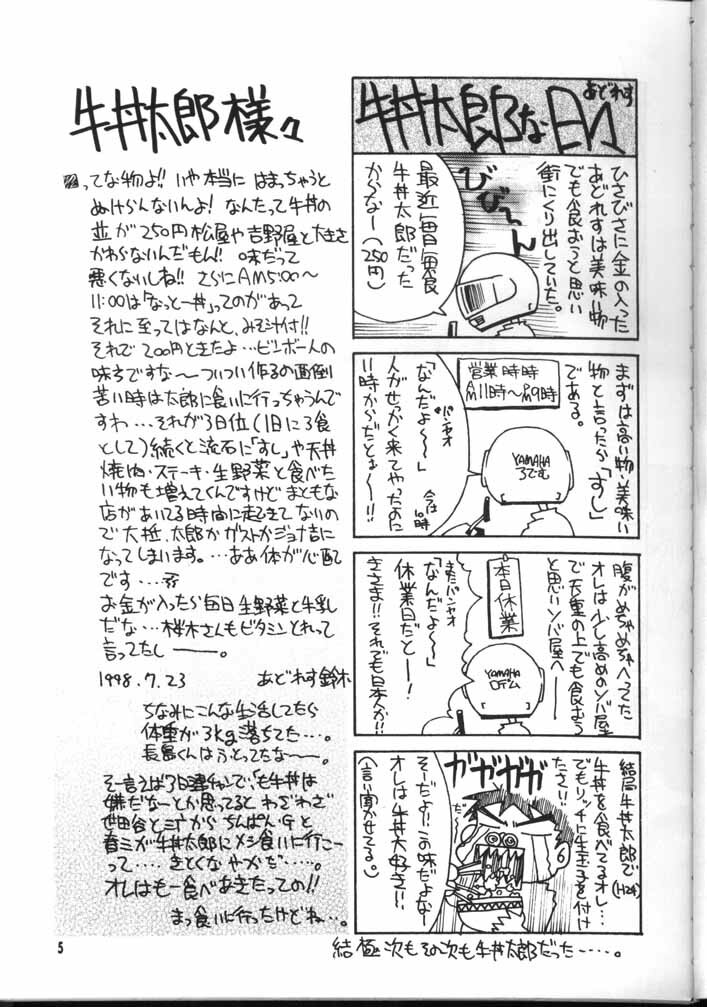 牛丼太郎な日々
あどれす
ひさびさに金の入った
あどれすは美味い物
でも食おうと思い
街にくり出していた。
びびーん
最近毎日毎食
牛丼太郎だった
からなー(250円)
まずは高い物・美味い
物と言ったら「すし」
である。
営業時時
AM11時〜PM9時
YAMAHA
ろでむ
バンッオ
「なんだよ〜〜」
今は10時
人がせっかく来てやったのに
11時からだとぉ〜!!
腹がめちゃめちゃへってた
オレは少し高めのソバ屋
で天重の上でも食おう
と思いソバ屋へ—
本日休業
YAMAHA
ロデム
またバンッオ
「なんだよ〜〜」
休業日だと—!
きさま!!それでも日本人か!!
結局牛丼太郎で(H24)
牛丼を食べてるオレ…
でもリッチに生玉子を付け
たさ!!
ガガガガ
そーだよ!!この味だよなー
オレは牛丼大好き!!
(言い聞かせてる。)
結極次もその次も牛丼太郎だった……。
牛丼太郎様々
ってな物よ!! いや本当に はまっちゃうと
ぬけらんないんよ! なんたって牛丼の
並が250円 松屋や吉野屋と大きさ
かわらないんだもん!! 味だって
悪くないしね!! さらにAM5:00〜
11:00は「なっとー丼」ってのがあって
それに至ってはなんと、みそ汁付!!
それで200円ときたよ…ビンボー人の
味方ですな〜 ついつい作るの面倒
苦い時は太郎に食いに行っちゃうんで
すわ…それが3日位(1日に3食
として)続くと流石に「すし」や天丼
焼肉・ステーキ・生野菜と食べた
い物も増えてくんですけどまともな
店があいてる時間に起きてないの
で大抵、太郎かガストかジョナ吉に
なってしまいます。…ああ体が心配
です…
お金が入ったら毎日生野菜と牛乳
だな…桜木さんもビタミンとれって
言ってたし———。
1998.7.23 あどれす鈴木
ちなみにこんな生活してたら
体重が3kg落ちてた…。
長島くんはふとってたな〜〜。
そー言えば3日連チャンで「も牛丼は
嫌だなーとか思ってると わざわざ
世田谷と三丁から ちんぱん・Gと
春ミが牛丼太郎にメシ食いに行こー
って…… きとくな やからだ……。
オレはもー食べあきたっての!!
まっ食いに行ったけどね…。
5